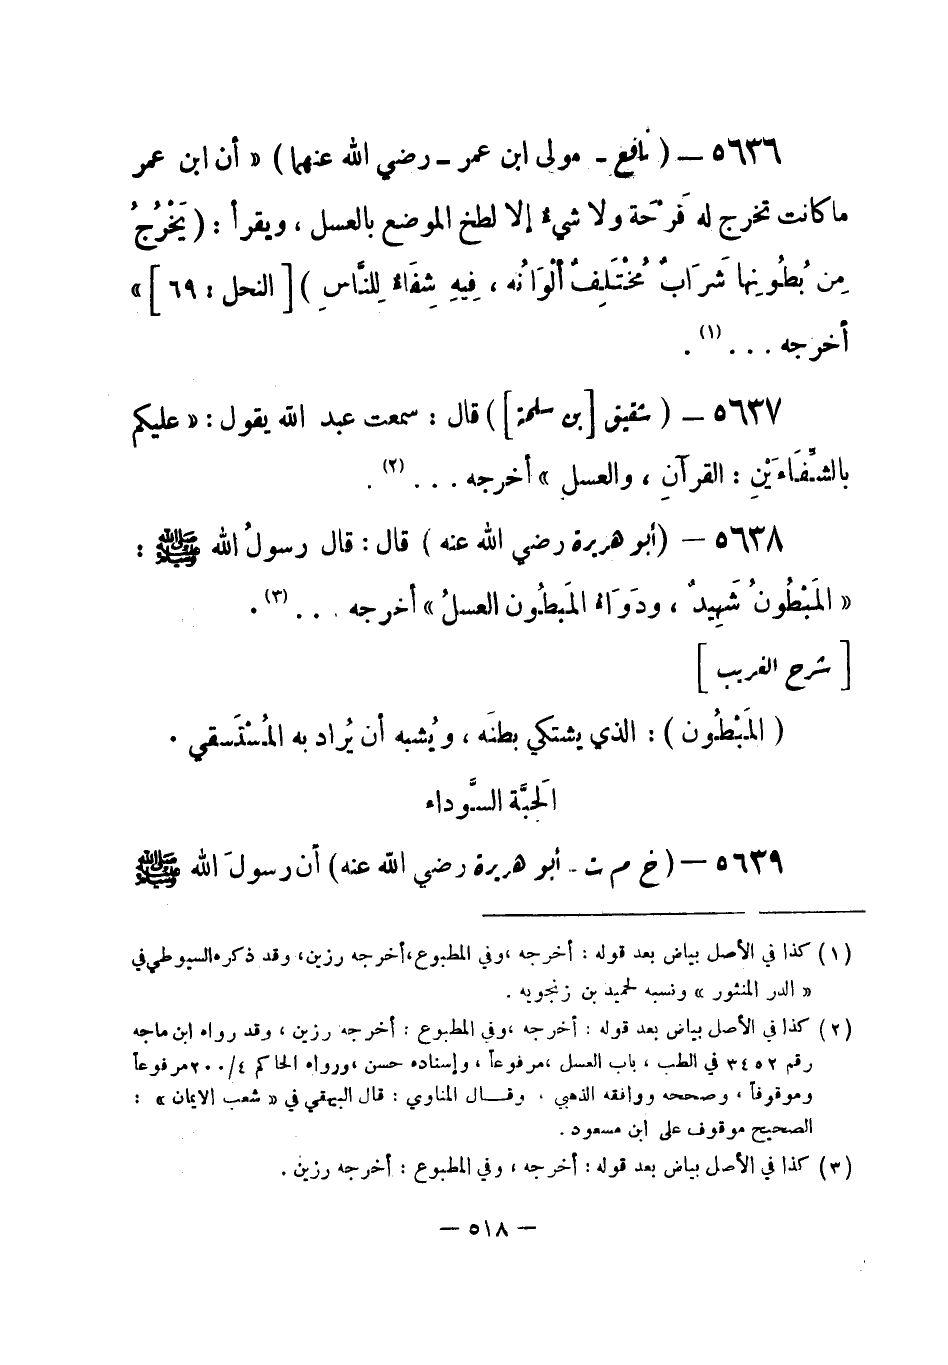 ٥٦٣٦ – ( نافع - مولى ابن عمر - رضي الله عنهما ) « أن ابن عمر
ما كانت تخرج له قَرحَة ولا شيءٌ إلا لطخ الموضع بالعسل ، ويقرأ : ( يَخْرُجُ
مِن بُطُونِها شَرَابٌ مُخْتَلِفٌ أَلْوَانُه ، فِيهِ شِفَاءٌ لِلنَّاسِ ) [ النحل : ٦٩ ] »
أخرجه . . . (١) .
٥٦٣٧ – ( شقيق [ بن سلمة ] ) قال : سمعت عبد الله يقول : « عليكم
بالشِّفَاءَيْنِ : القرآنِ ، والعسلِ » أخرجه . . . (٢) .
٥٦٣٨ – ( أبو هريرة رضي الله عنه ) قال : قال رسولُ الله ﷺ :
« المَبْطُونُ شَهِيدٌ ، ودَوَاءُ المَبطُون العسلُ » أخرجه . . . (٣) .
[ شرح الغريب ]
( المَبْطُون ) : الذي يشتكي بطنَه ، ويُشبه أن يُراد به المُسْتَسقي .
الحبَّة السَّوداء
٥٦٣٩ – ( خ م ت - أبو هريرة رضي الله عنه ) أن رسولَ الله ﷺ
(١) كذا في الأصل بياض بعد قوله : أخرجه ، وفي المطبوع ، أخرجه رزين، وقد ذكره السيوطي في
« الدر المنثور » ونسبه لحميد بن زنجويه .
(٢) كذا في الأصل بياض بعد قوله : أخرجه ، وفي المطبوع : أخرجه رزين ، وقد رواه ابن ماجه
رقم ٣٤٥٢ في الطب ، باب العسل ، مرفوعاً ، وإسناده حسن ، ورواه الحاكم ٢٠٠/٤ مرفوعاً
وموقوفاً ، وصححه ووافقه الذهبي . وقـــال المناوي : قال البيهقي في « شعب الايمان » :
الصحيح موقوف على ابن مسعود .
(٣) كذا في الأصل بياض بعد قوله : أخرجه ، وفي المطبوع : أخرجه رزين .
– ٥١٨ –